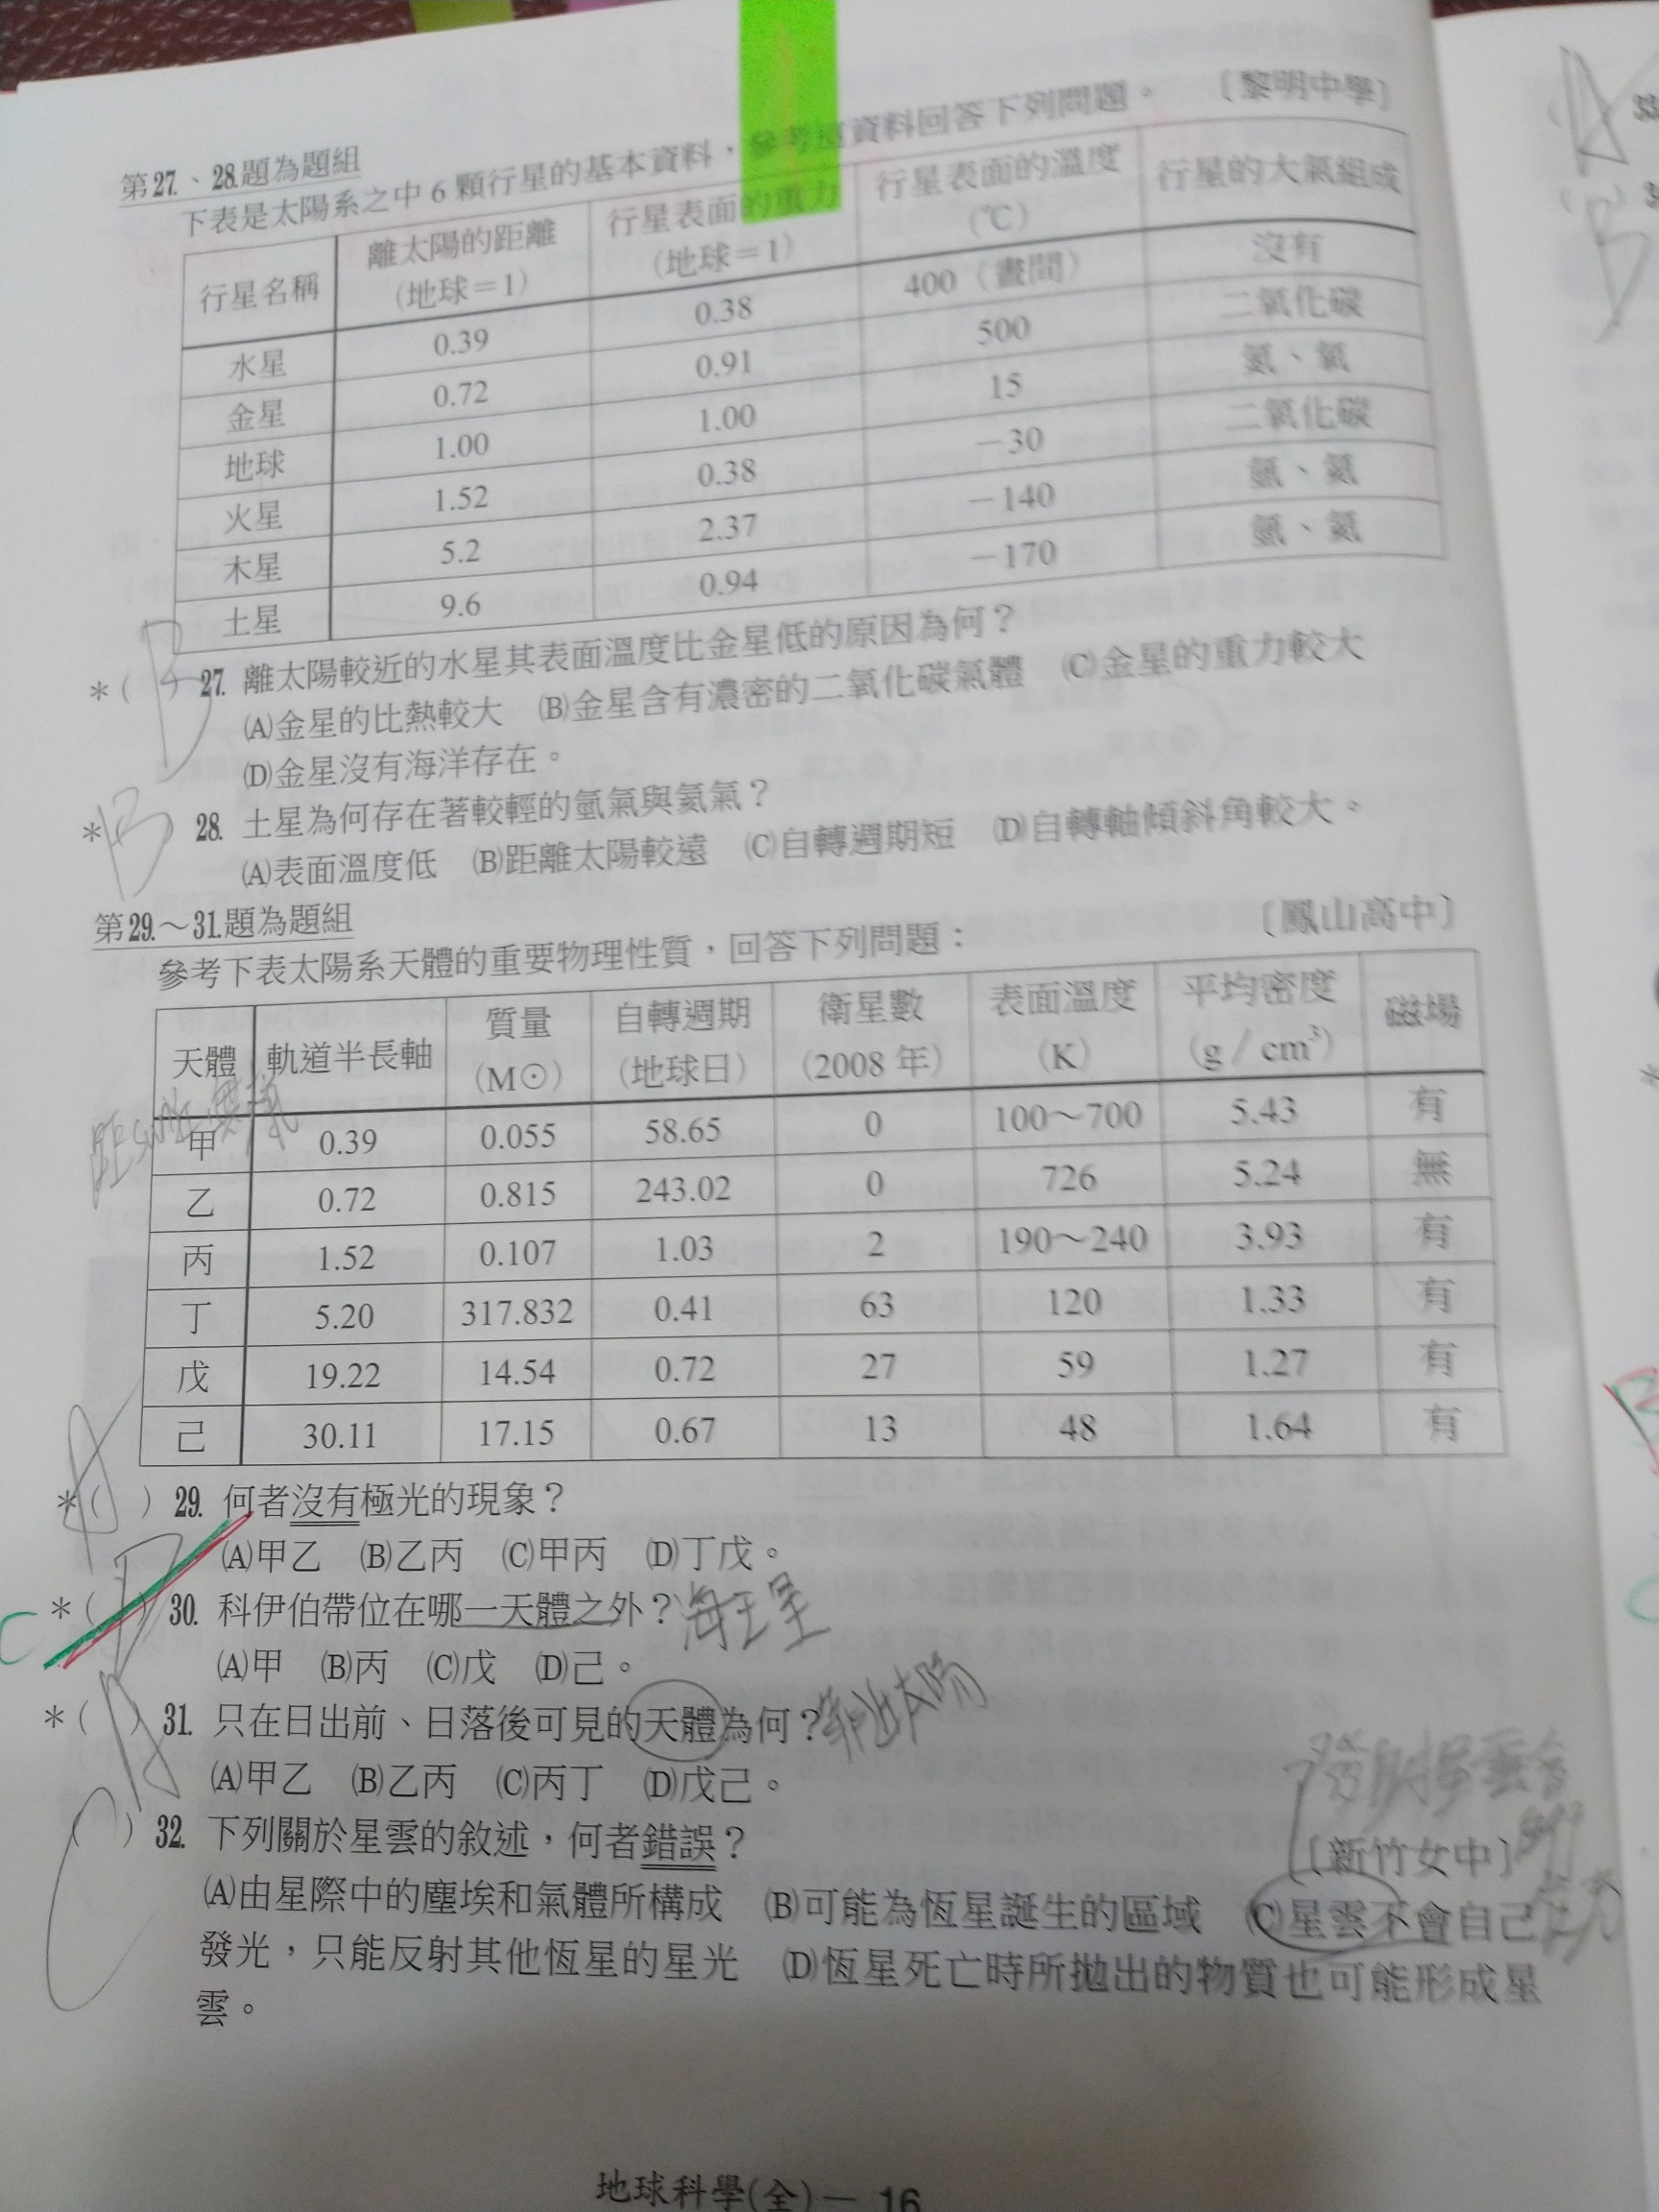 第27.、28.題為題組
下表是太陽系之中6顆行星的基本資料，參考這資料回答下列問題。 〔黎明中學〕
行星名稱 離太陽的距離（地球＝1） 行星表面的重力（地球＝1） 行星表面的溫度（℃） 行星的大氣組成
水星 0.39 0.38 400（晝間） 沒有
金星 0.72 0.91 500 二氧化碳
地球 1.00 1.00 15 氮、氧
火星 1.52 0.38 －30 二氧化碳
木星 5.2 2.37 －140 氫、氦
土星 9.6 0.94 －170 氫、氦
＊( B ) 27. 離太陽較近的水星其表面溫度比金星低的原因為何？
(A)金星的比熱較大 (B)金星含有濃密的二氧化碳氣體 (C)金星的重力較大
(D)金星沒有海洋存在。
＊( B ) 28. 土星為何存在著較輕的氫氣與氦氣？
(A)表面溫度低 (B)距離太陽較遠 (C)自轉週期短 (D)自轉軸傾斜角較大。
第29.～31.題為題組
參考下表太陽系天體的重要物理性質，回答下列問題： 〔鳳山高中〕
天體 軌道半長軸 質量（M⊙） 自轉週期（地球日） 衛星數（2008年） 表面溫度（K） 平均密度（g／cm³） 磁場
甲 0.39 0.055 58.65 0 100～700 5.43 有
乙 0.72 0.815 243.02 0 726 5.24 無
丙 1.52 0.107 1.03 2 190～240 3.93 有
丁 5.20 317.832 0.41 63 120 1.33 有
戊 19.22 14.54 0.72 27 59 1.27 有
己 30.11 17.15 0.67 13 48 1.64 有
＊( A ) 29. 何者沒有極光的現象？
(A)甲乙 (B)乙丙 (C)甲丙 (D)丁戊。
C ＊( D ) 30. 科伊伯帶位在哪一天體之外？海王星
(A)甲 (B)丙 (C)戊 (D)己。
＊( A ) 31. 只在日出前、日落後可見的天體為何？靠近太陽
(A)甲乙 (B)乙丙 (C)丙丁 (D)戊己。
( C ) 32. 下列關於星雲的敘述，何者錯誤？ 〔新竹女中〕
(A)由星際中的塵埃和氣體所構成 (B)可能為恆星誕生的區域 (C)星雲不會自己
發光，只能反射其他恆星的星光 (D)恆星死亡時所拋出的物質也可能形成星
雲。
地球科學(全)－16